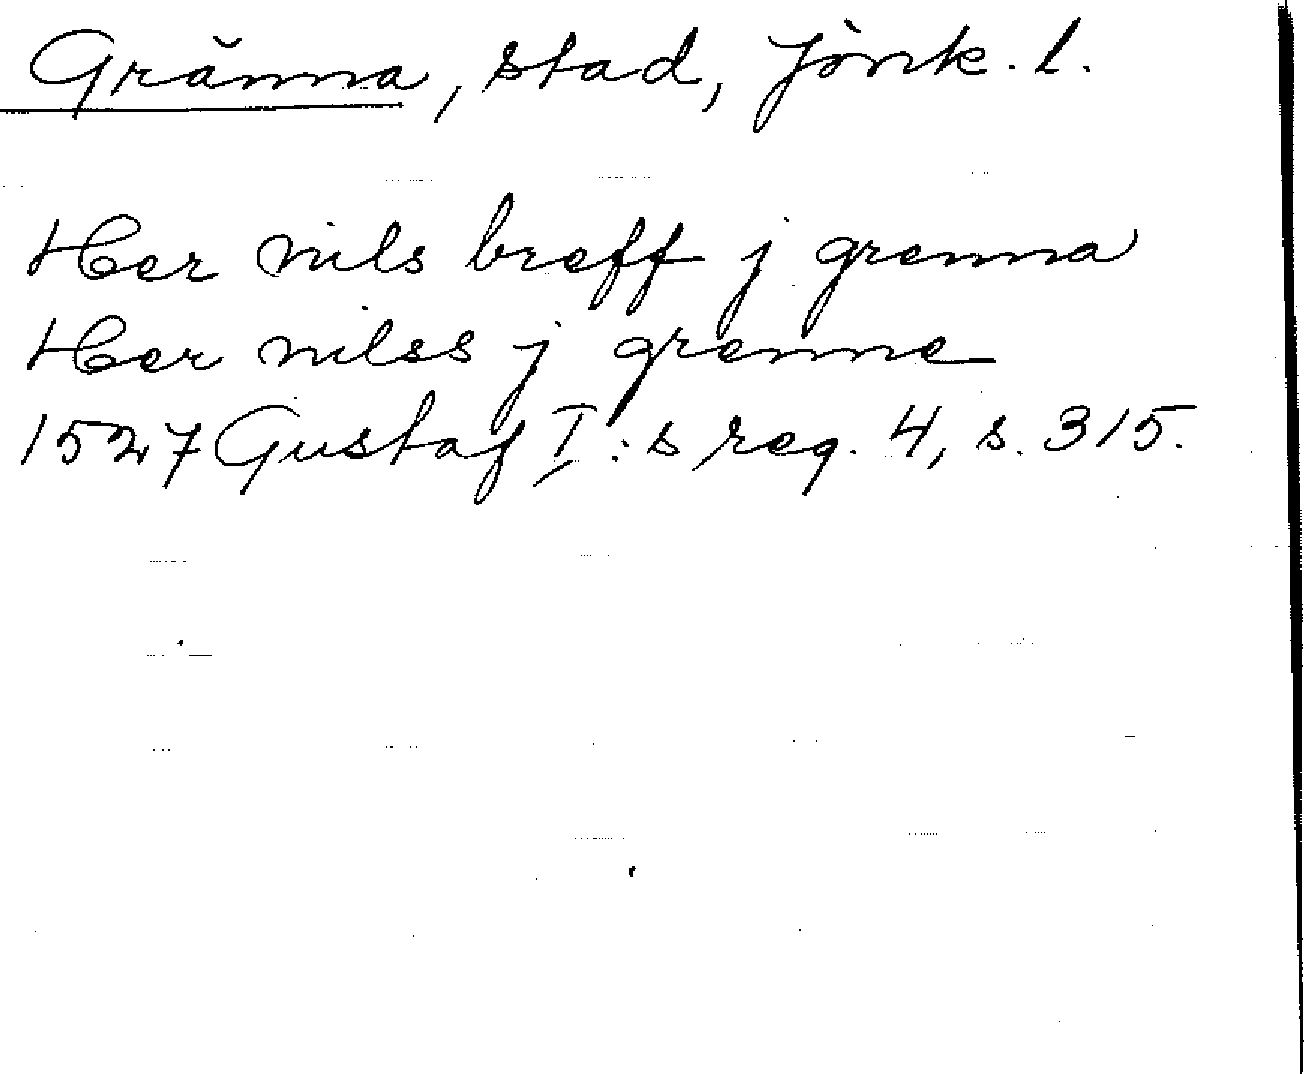 Gränna, stad, Jönk. l.
Her nils breff j grenna
Her nilss j grenne
1527 Gustaf I:s reg. 4, s. 315.